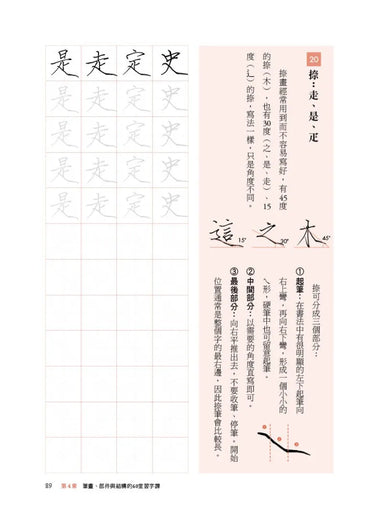 20
捺：走、是、疋
捺畫經常用到而不容易寫好，有45度
的捺（木），也有30度（之、是、走）、15
度（辶）的捺，寫法一樣，只是角度不同。
木 45°
之 30°
這 15°
捺可分成三個部分：
①起筆：在書法中有很明顯的左下起筆向
右上彎，再向右下彎，形成一個小小的
ㄟ形，硬筆中也可留意起筆。
②中間部分：以需要的角度直寫即可。
③最後部分：向右平推出去，不要收筆、停筆，開始
位置通常是整個字的最右邊，因此捺筆會比較長。
史 史 史 史 史
定 定 定 定 定
走 走 走 走 走
是 是 是 是 是
89 第4章 筆畫、部件與結構的60堂習字課